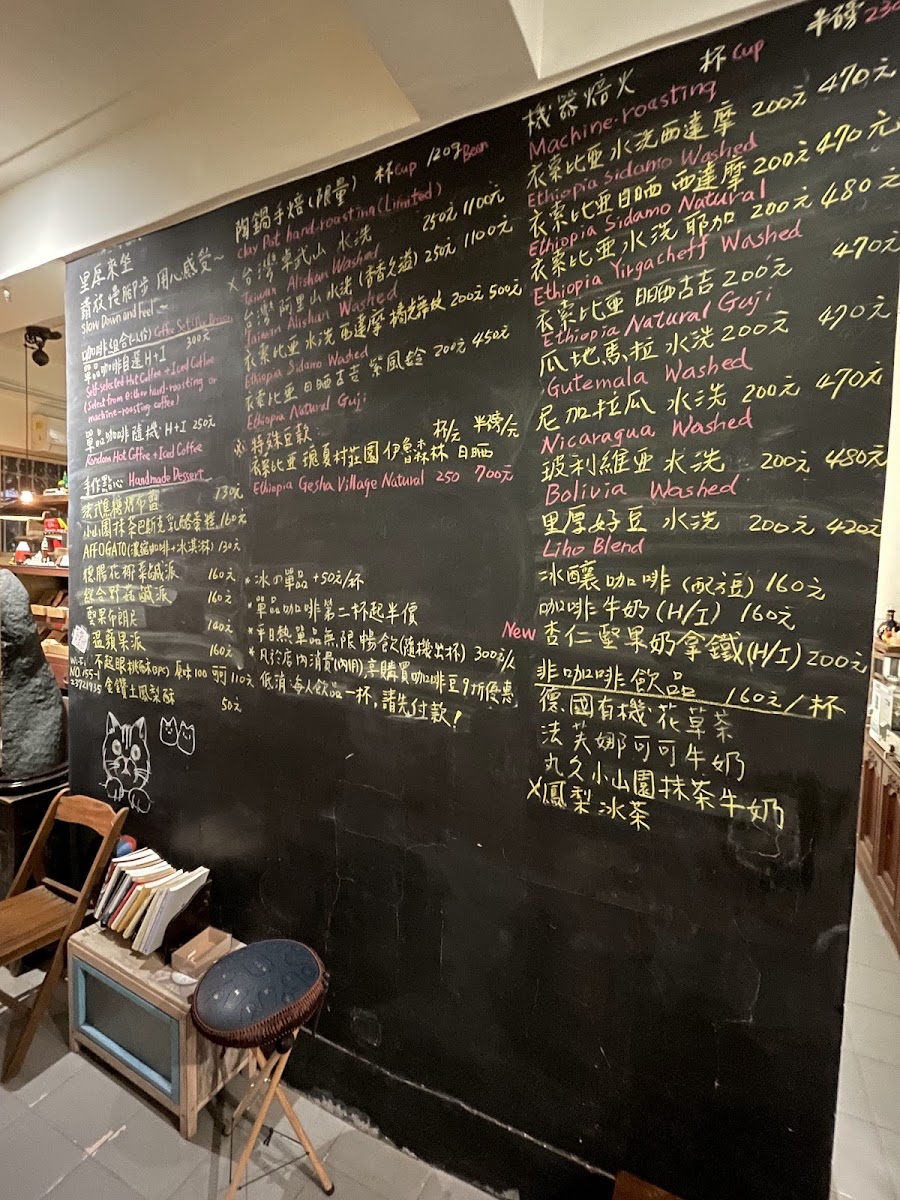 里厚來坐
請放慢腳步 用心感受~
Slow Down and Feel~
咖啡組合(1人份) Coffee Set
單品咖啡自選H+I 300元
Self-selected Hot Coffee + Iced Coffee
(Select from either hand-roasting or
machine-roasting coffee)
單品咖啡隨機:H+I 250元
Random Hot Coffee + Iced Coffee
手作點心 Handmade Dessert
法式焦糖烤布蕾 130元
小山園抹茶巴斯克乳酪蛋糕 160元
AFFOGATO(濃縮咖啡+冰淇淋) 130元
德腸花椰菜鹹派 160元
綜合野菇鹹派 160元
堅果布朗尼 140元
蘋果派 160元
不起眼桃酥(3PC) 原味100 可可110元
金鑽土鳳梨酥 50元
Wi-Fi
NO.155-1
23721935
陶鍋手焙(限量) 杯Cup 120g Bean
Clay Pot hand-roasting (Limited)
X台灣卓武山 水洗 250元 1100元
Taiwan Alishan Washed
台灣阿里山水洗 (香香久溢) 250元 1100元
Taiwan Alishan Washed
衣索比亞 水洗 西達摩 橘光舞紋 200元 500元
Ethiopia Sidamo Washed
衣索比亞 日晒古吉 紫風鈴 200元 450元
Ethiopia Natural Guji
特殊豆款: 杯/元 半磅/元
衣索比亞 瑰夏村莊園 伊魯森林 日晒
Ethiopia Gesha Village Natural 250 700元
*冰の單品 +50元/杯
*單品咖啡第二杯起半價
*平日熱單品無限暢飲(隨機出杯) 300元/人
*凡於店內消費(內用),享購買咖啡豆9折優惠
低消:每人飲品一杯,請先付款!
機器焙火 杯Cup 半磅
Machine-roasting
衣索比亞 水洗西達摩 200元 470元
Ethiopia Sidamo Washed
衣索比亞日晒 西達摩 200元 470元
Ethiopia Sidamo Natural
衣索比亞水洗 耶加 200元 480元
Ethiopia Yirgacheff Washed
衣索比亞 日晒古吉 200元 470元
Ethiopia Natural Guji
瓜地馬拉 水洗 200元 470元
Gutemala Washed
尼加拉瓜 水洗 200元 470元
Nicaragua Washed
玻利維亞 水洗 200元 480元
Bolivia Washed
里厚好豆 水洗 200元 420元
Liho Blend
冰釀咖啡 (配方豆) 160元
咖啡牛奶 (H/I) 160元
New 杏仁堅果奶拿鐵(H/I) 200元
非咖啡飲品 160元/杯
德國有機花草茶
法芙娜可可牛奶
丸久小山園抹茶牛奶
X鳳梨冰茶